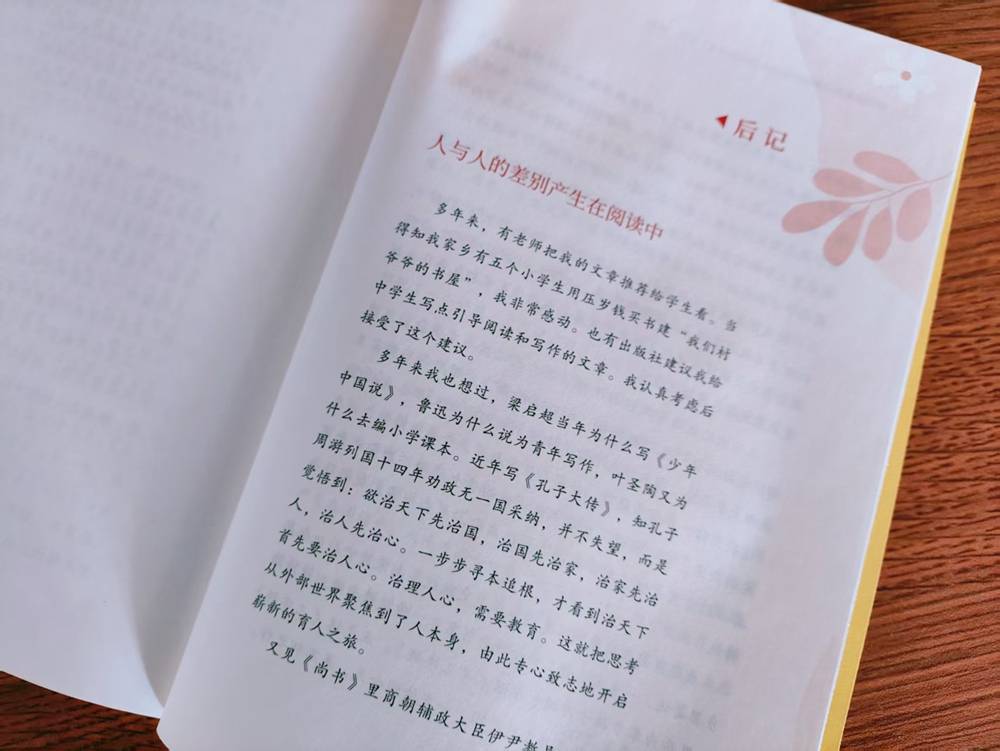 后记
人与人的差别产生在阅读中
多年来，有老师把我的文章推荐给学生看。当
得知我家乡有五个小学生用压岁钱买书建“我们村
爷爷的书屋”，我非常感动。也有出版社建议我给
中学生写点引导阅读和写作的文章。我认真考虑后
接受了这个建议。
多年来我也想过，梁启超当年为什么写《少年
中国说》，鲁迅为什么说为青年写作，叶圣陶又为
什么去编小学课本。近年写《孔子大传》，知孔子
周游列国十四年劝政无一国采纳，并不失望，而是
觉悟到：欲治天下先治国，治国先治家，治家先治
人，治人先治心。一步步寻本追根，才看到治天下
首先要治人心。治理人心，需要教育。这就把思考
从外部世界聚焦到了人本身，由此专心致志地开启
崭新的育人之旅。
又见《尚书》里商朝辅政大臣伊尹教